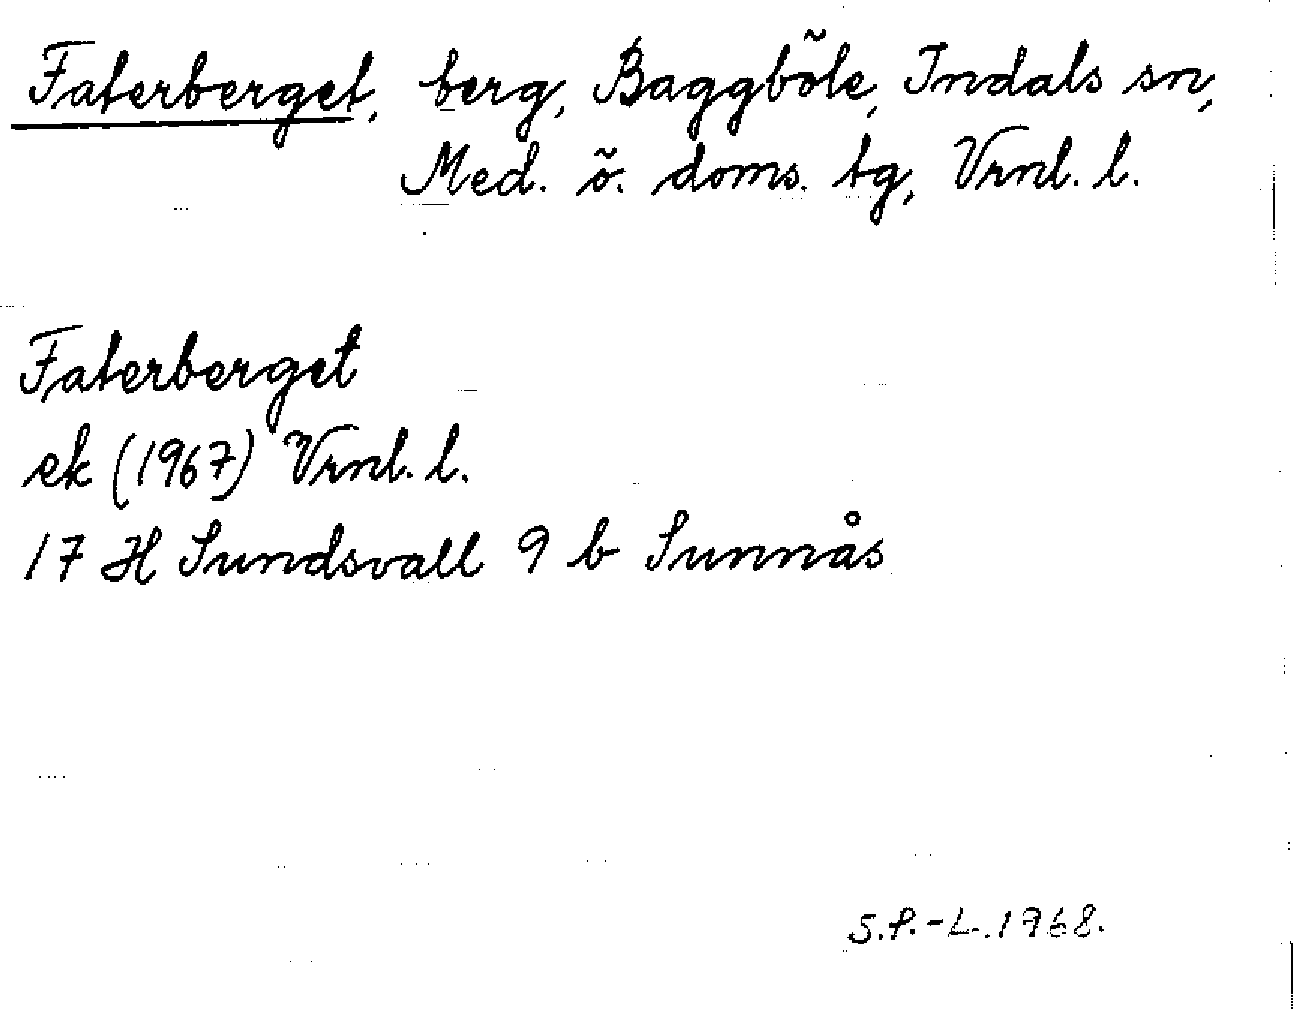 Faterberget, berg, Baggböle, Indals sn,
Med. ö. doms. tg, Vrnl. l.
Faterberget
ek (1967) Vrnl. l.
17 H Sundsvall 9 b Sunnås
S.P.-L. 1968.